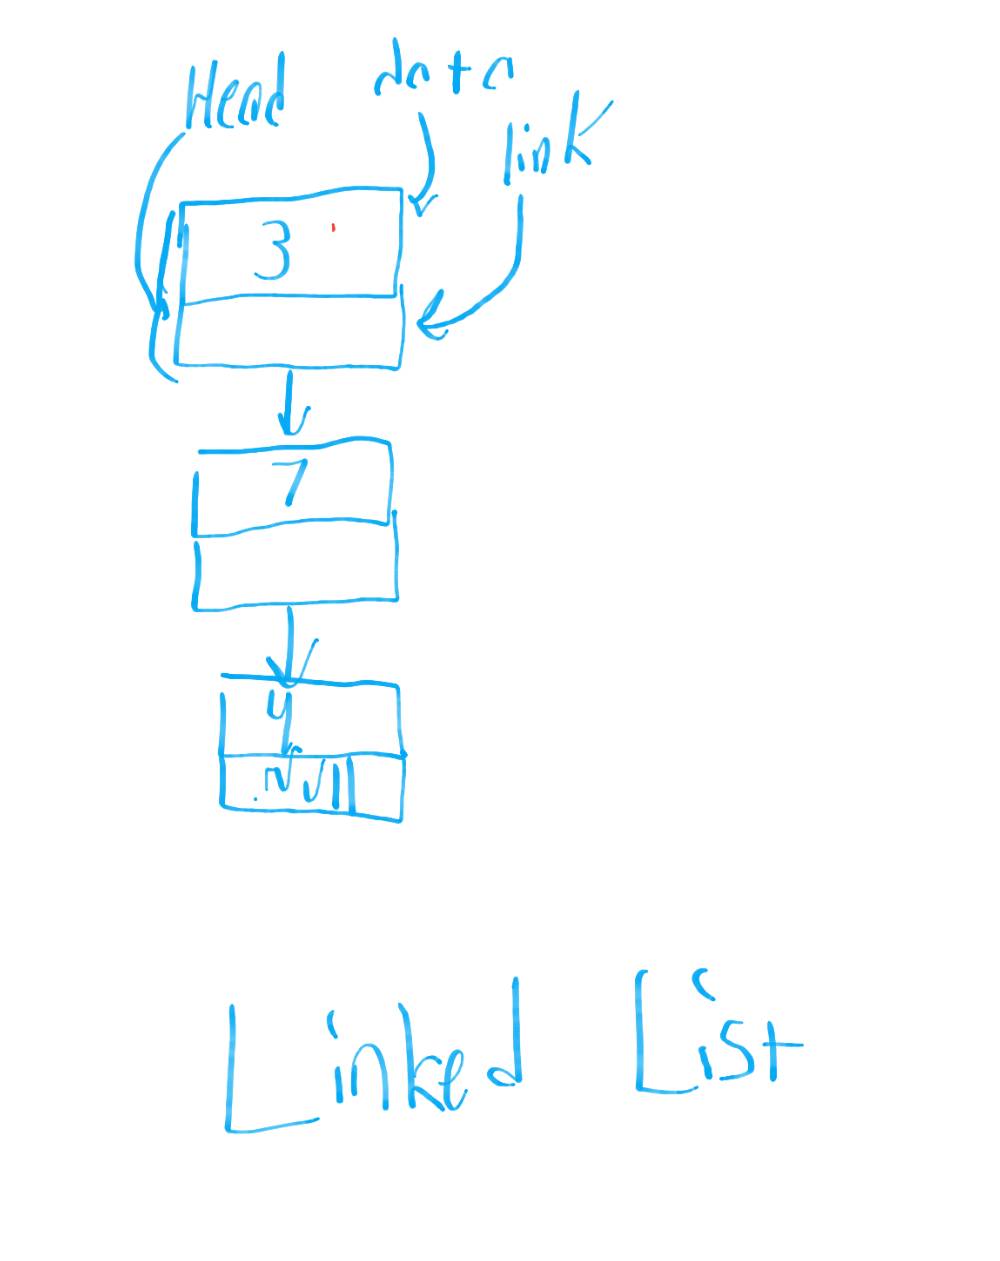 Head data
link
3
7
4
Null
Linked List